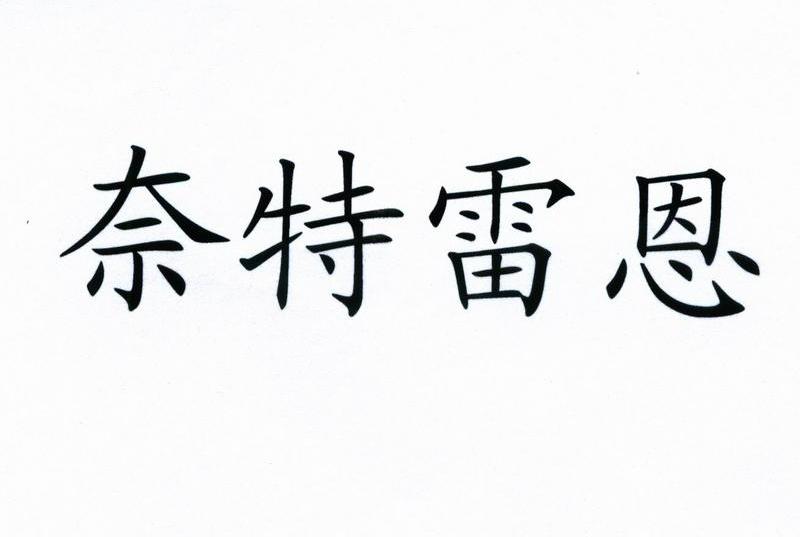 奈特雷恩